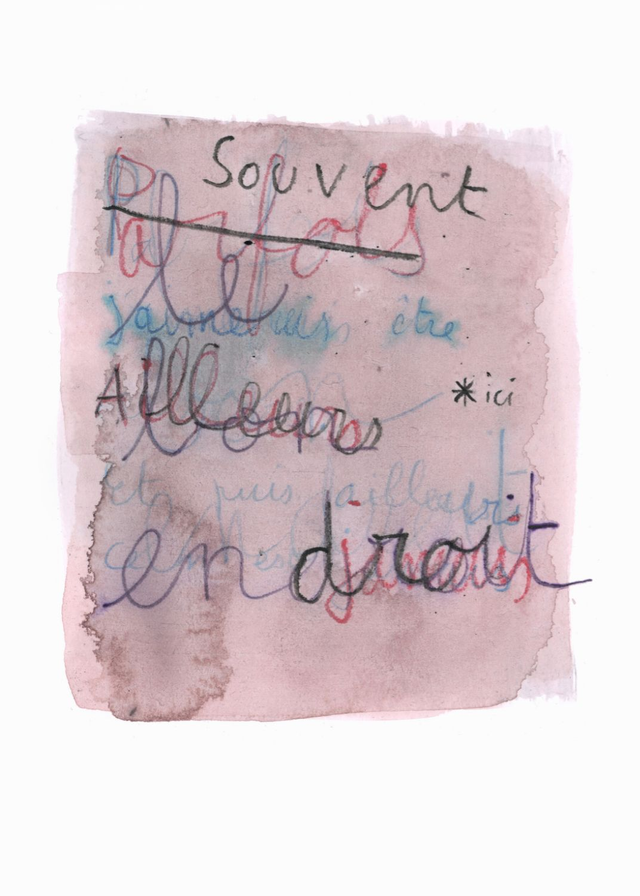 Souvent
Parfois
le
j'aimerais être
Ailleurs
*ici
bon
et puis l'ailleurs
en droit
jamais